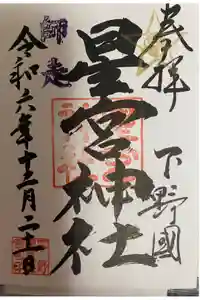 奉拝
下野國
星宮神社
師走
令和六年十二月二十一日